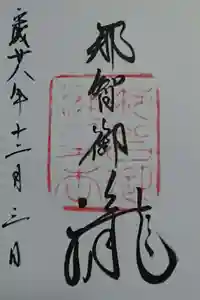 那智御瀧
平成廿八年十二月三日